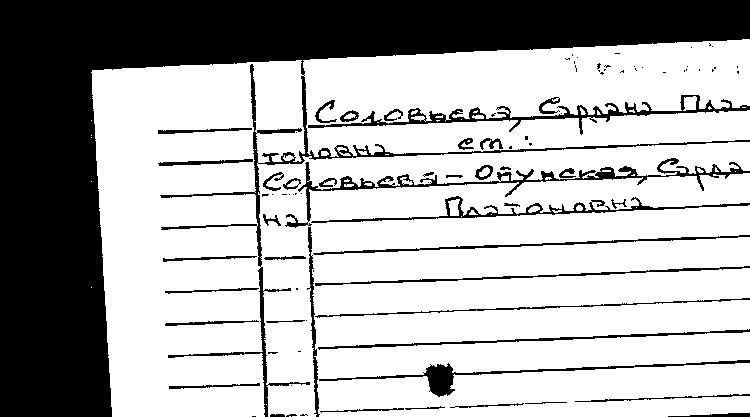 Соловьева, Сардана Пла-
тоновна см.:
Соловьева-Ойунская, Сарда
на Платоновна